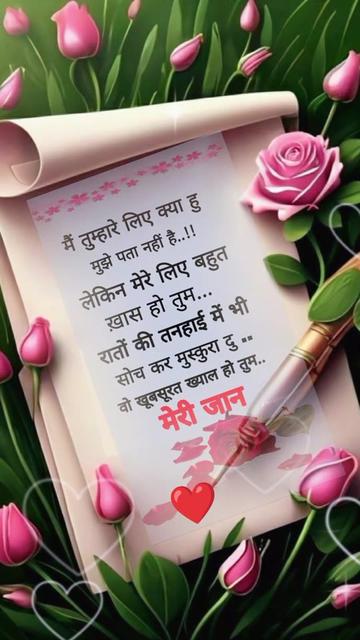 मैं तुम्हारे लिए क्या हु
मुझे पता नहीं है..!!
लेकिन मेरे लिए बहुत
ख़ास हो तुम...
रातों की तनहाई में भी
सोच कर मुस्कुरा दु --
वो खूबसूरत ख्याल हो तुम..
मेरी जान